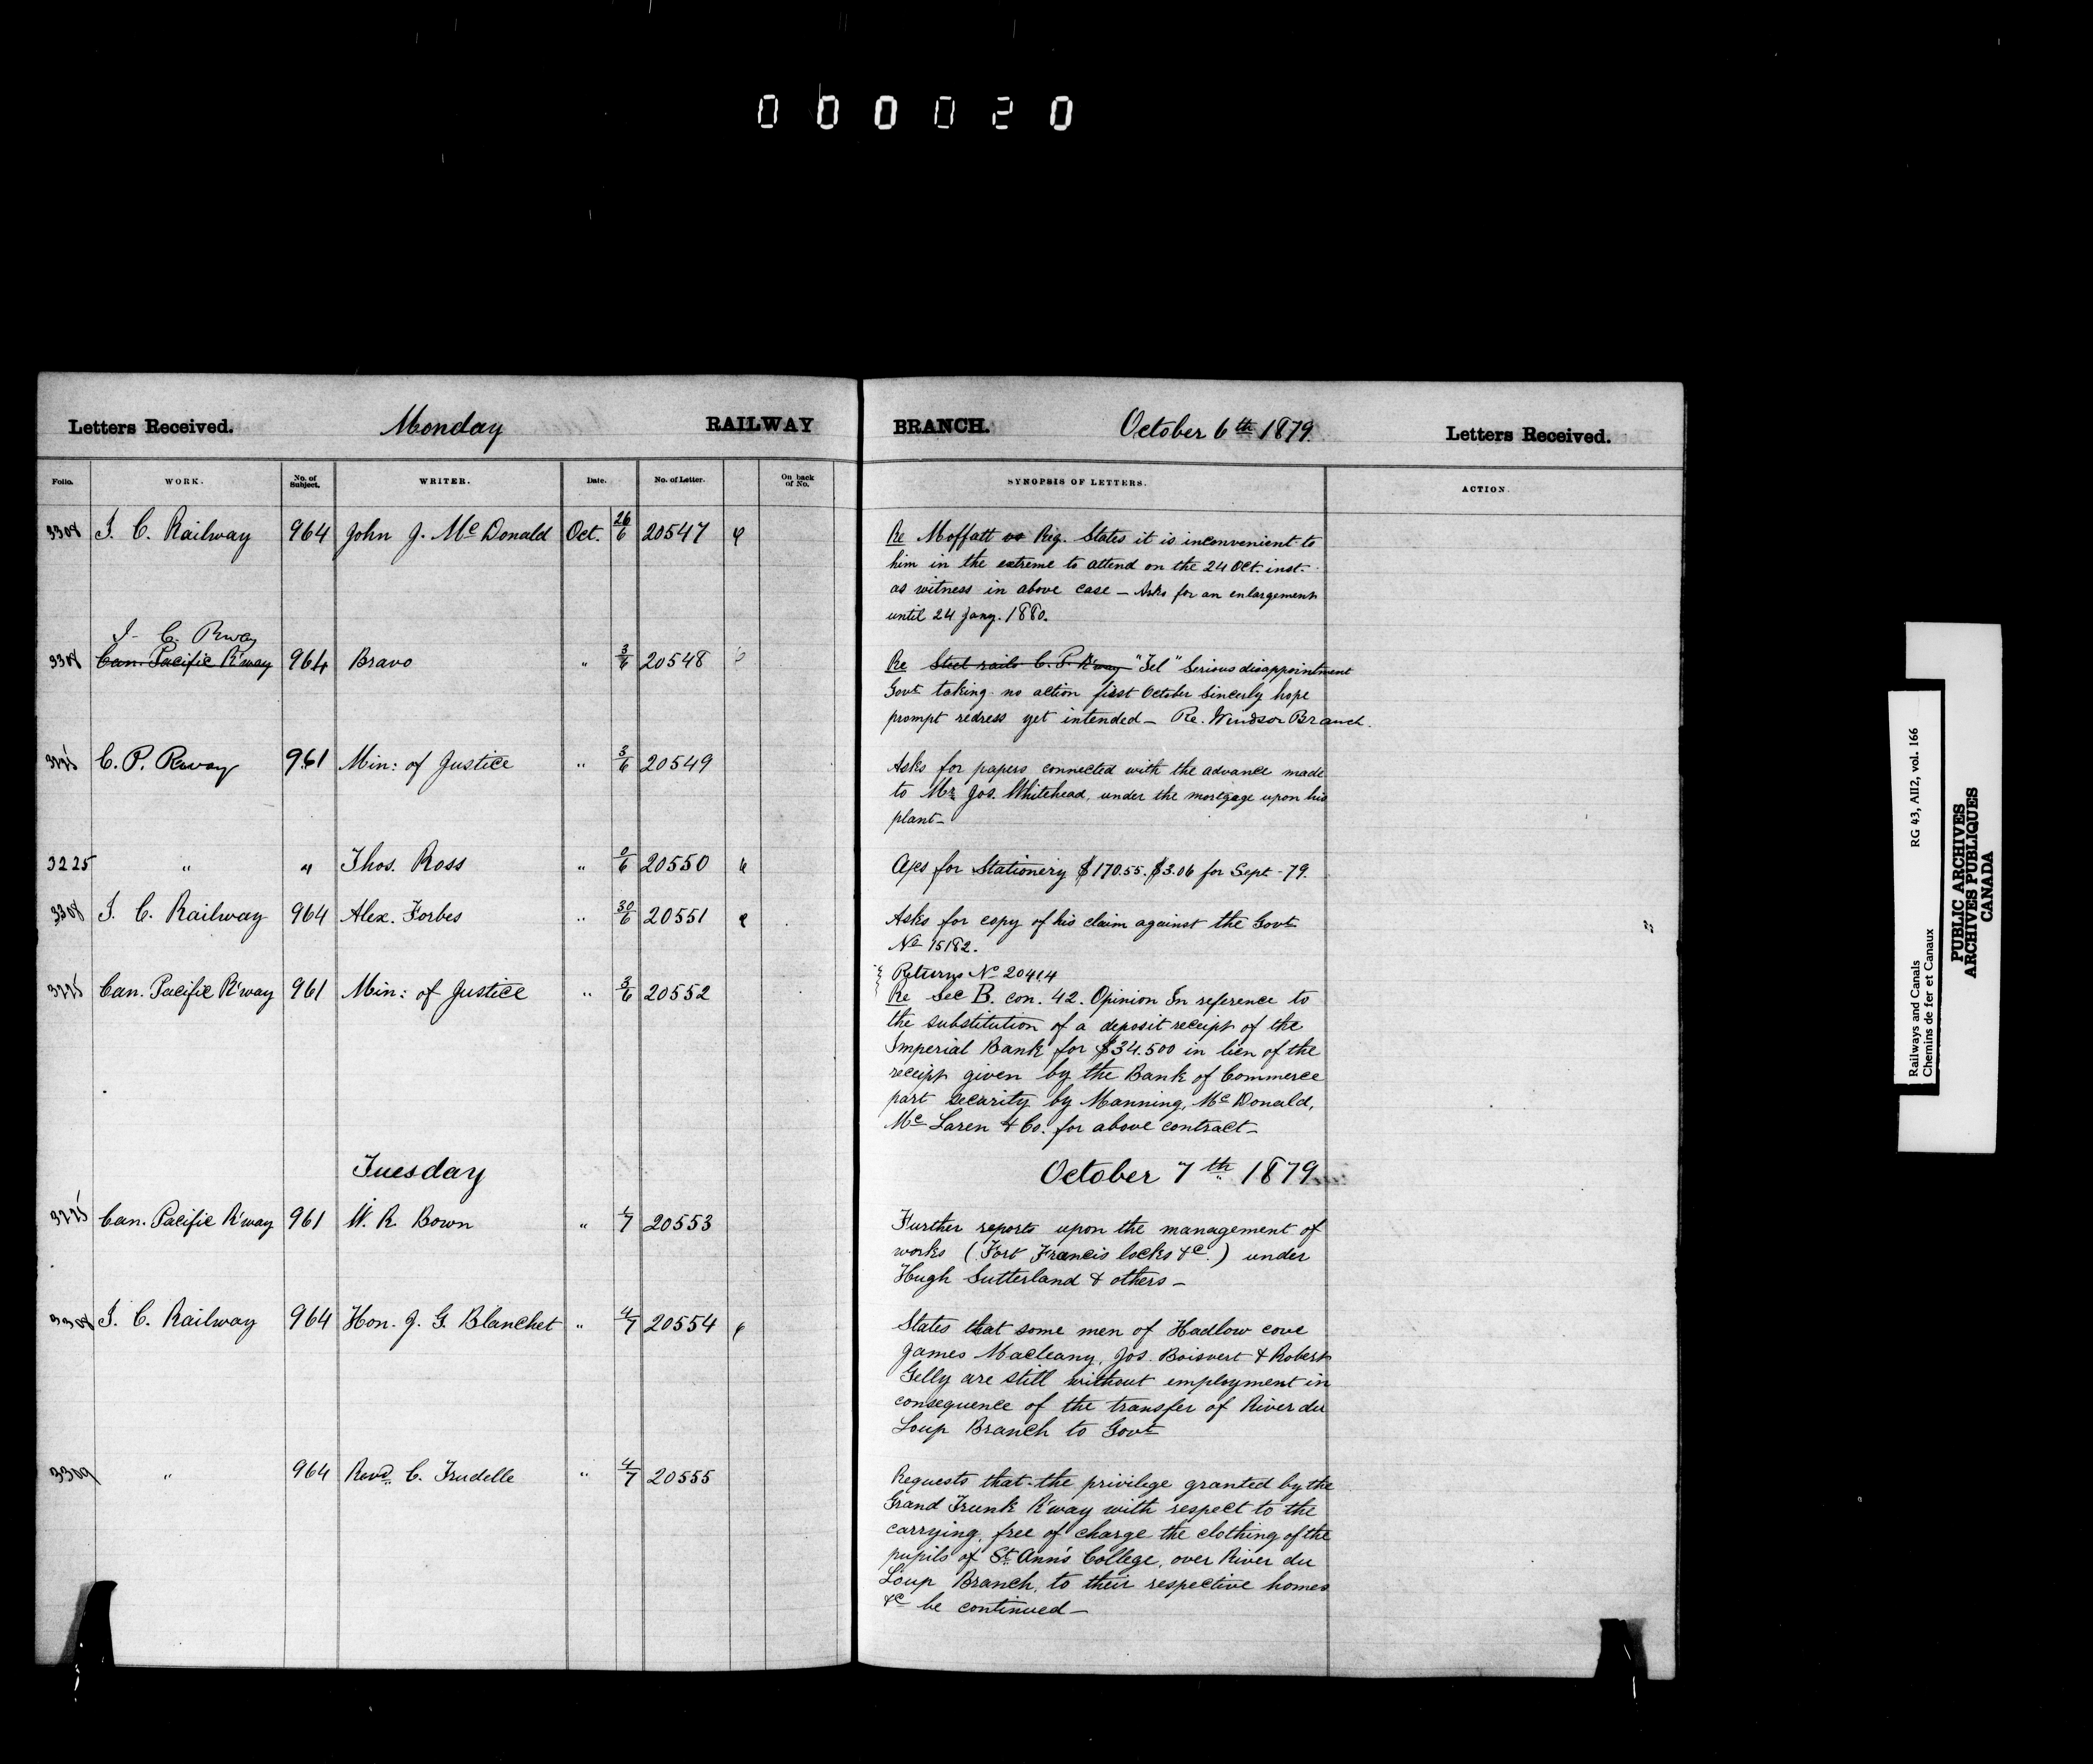 000020
Letters Received. Monday RAILWAY BRANCH. October 6th 1879 Letters Received.
Folio. WORK. No. of Subject. WRITER. Date. No. of Letter. On back of No. SYNOPSIS OF LETTERS. ACTION.
3308 I. C. Railway 964 John J. McDonald Oct. 26/6 20547
Re Moffatt vs Reg. States it is inconvenient to
him in the extreme to attend on the 24 Oct. inst.
as witness in above case – Asks for an enlargement
until 24 Jany. 1880.
I. C. Rway
3308 Can. Pacific R'way 964 Bravo " 3/6 20548
Re Steel rails C. P. R'way "Tel" Serious disappointment
Govt taking no action first October Sincerly hope
prompt redress yet intended – Re. Windsor Branch.
3225 C. P. Rway 961 Min: of Justice " 3/6 20549
Asks for papers connected with the advance made
to Mr Jos. Whitehead, under the mortgage upon his
plant –
3225 " " Thos. Ross " 0/6 20550
a/cs for Stationery $170.55. $3.06 for Sept - 79.
3308 I. C. Railway 964 Alex. Forbes " 30/6 20551
Asks for copy of his claim against the Govt
No 15182.
3225 Can. Pacific R'way 961 Min: of Justice " 3/6 20552
Returns No 20414
Re Sec B. con. 42. Opinion In reference to
the substitution of a deposit receipt of the
Imperial Bank for $34.500 in lieu of the
receipt given by the Bank of Commerce
part security by Manning, McDonald,
McLaren & Co. for above contract –
Tuesday October 7th 1879
3225 Can. Pacific R'way 961 W. R. Bown " /7 20553
Further reports upon the management of
works (Fort Francis locks &c.) under
Hugh Sutterland & others –
3308 I. C. Railway 964 Hon. J. G. Blanchet " 4/7 20554
States that some men of Hadlow cove
James Macleany, Jos. Boisvert & Robert
Gelly are still without employment in
consequence of the transfer of River du
Loup Branch to Govt
3309 " 964 Revd. C. Trudelle " 4/7 20555
Requests that the privilege granted by the
Grand Trunk R'way with respect to the
carrying, free of charge the clothing of the
pupils of St. Ann's College, over River du
Loup Branch, to their respective homes
&c be continued –
Railways and Canals RG 43, A112, vol. 166
Chemins de fer et Canaux
PUBLIC ARCHIVES
ARCHIVES PUBLIQUES
CANADA